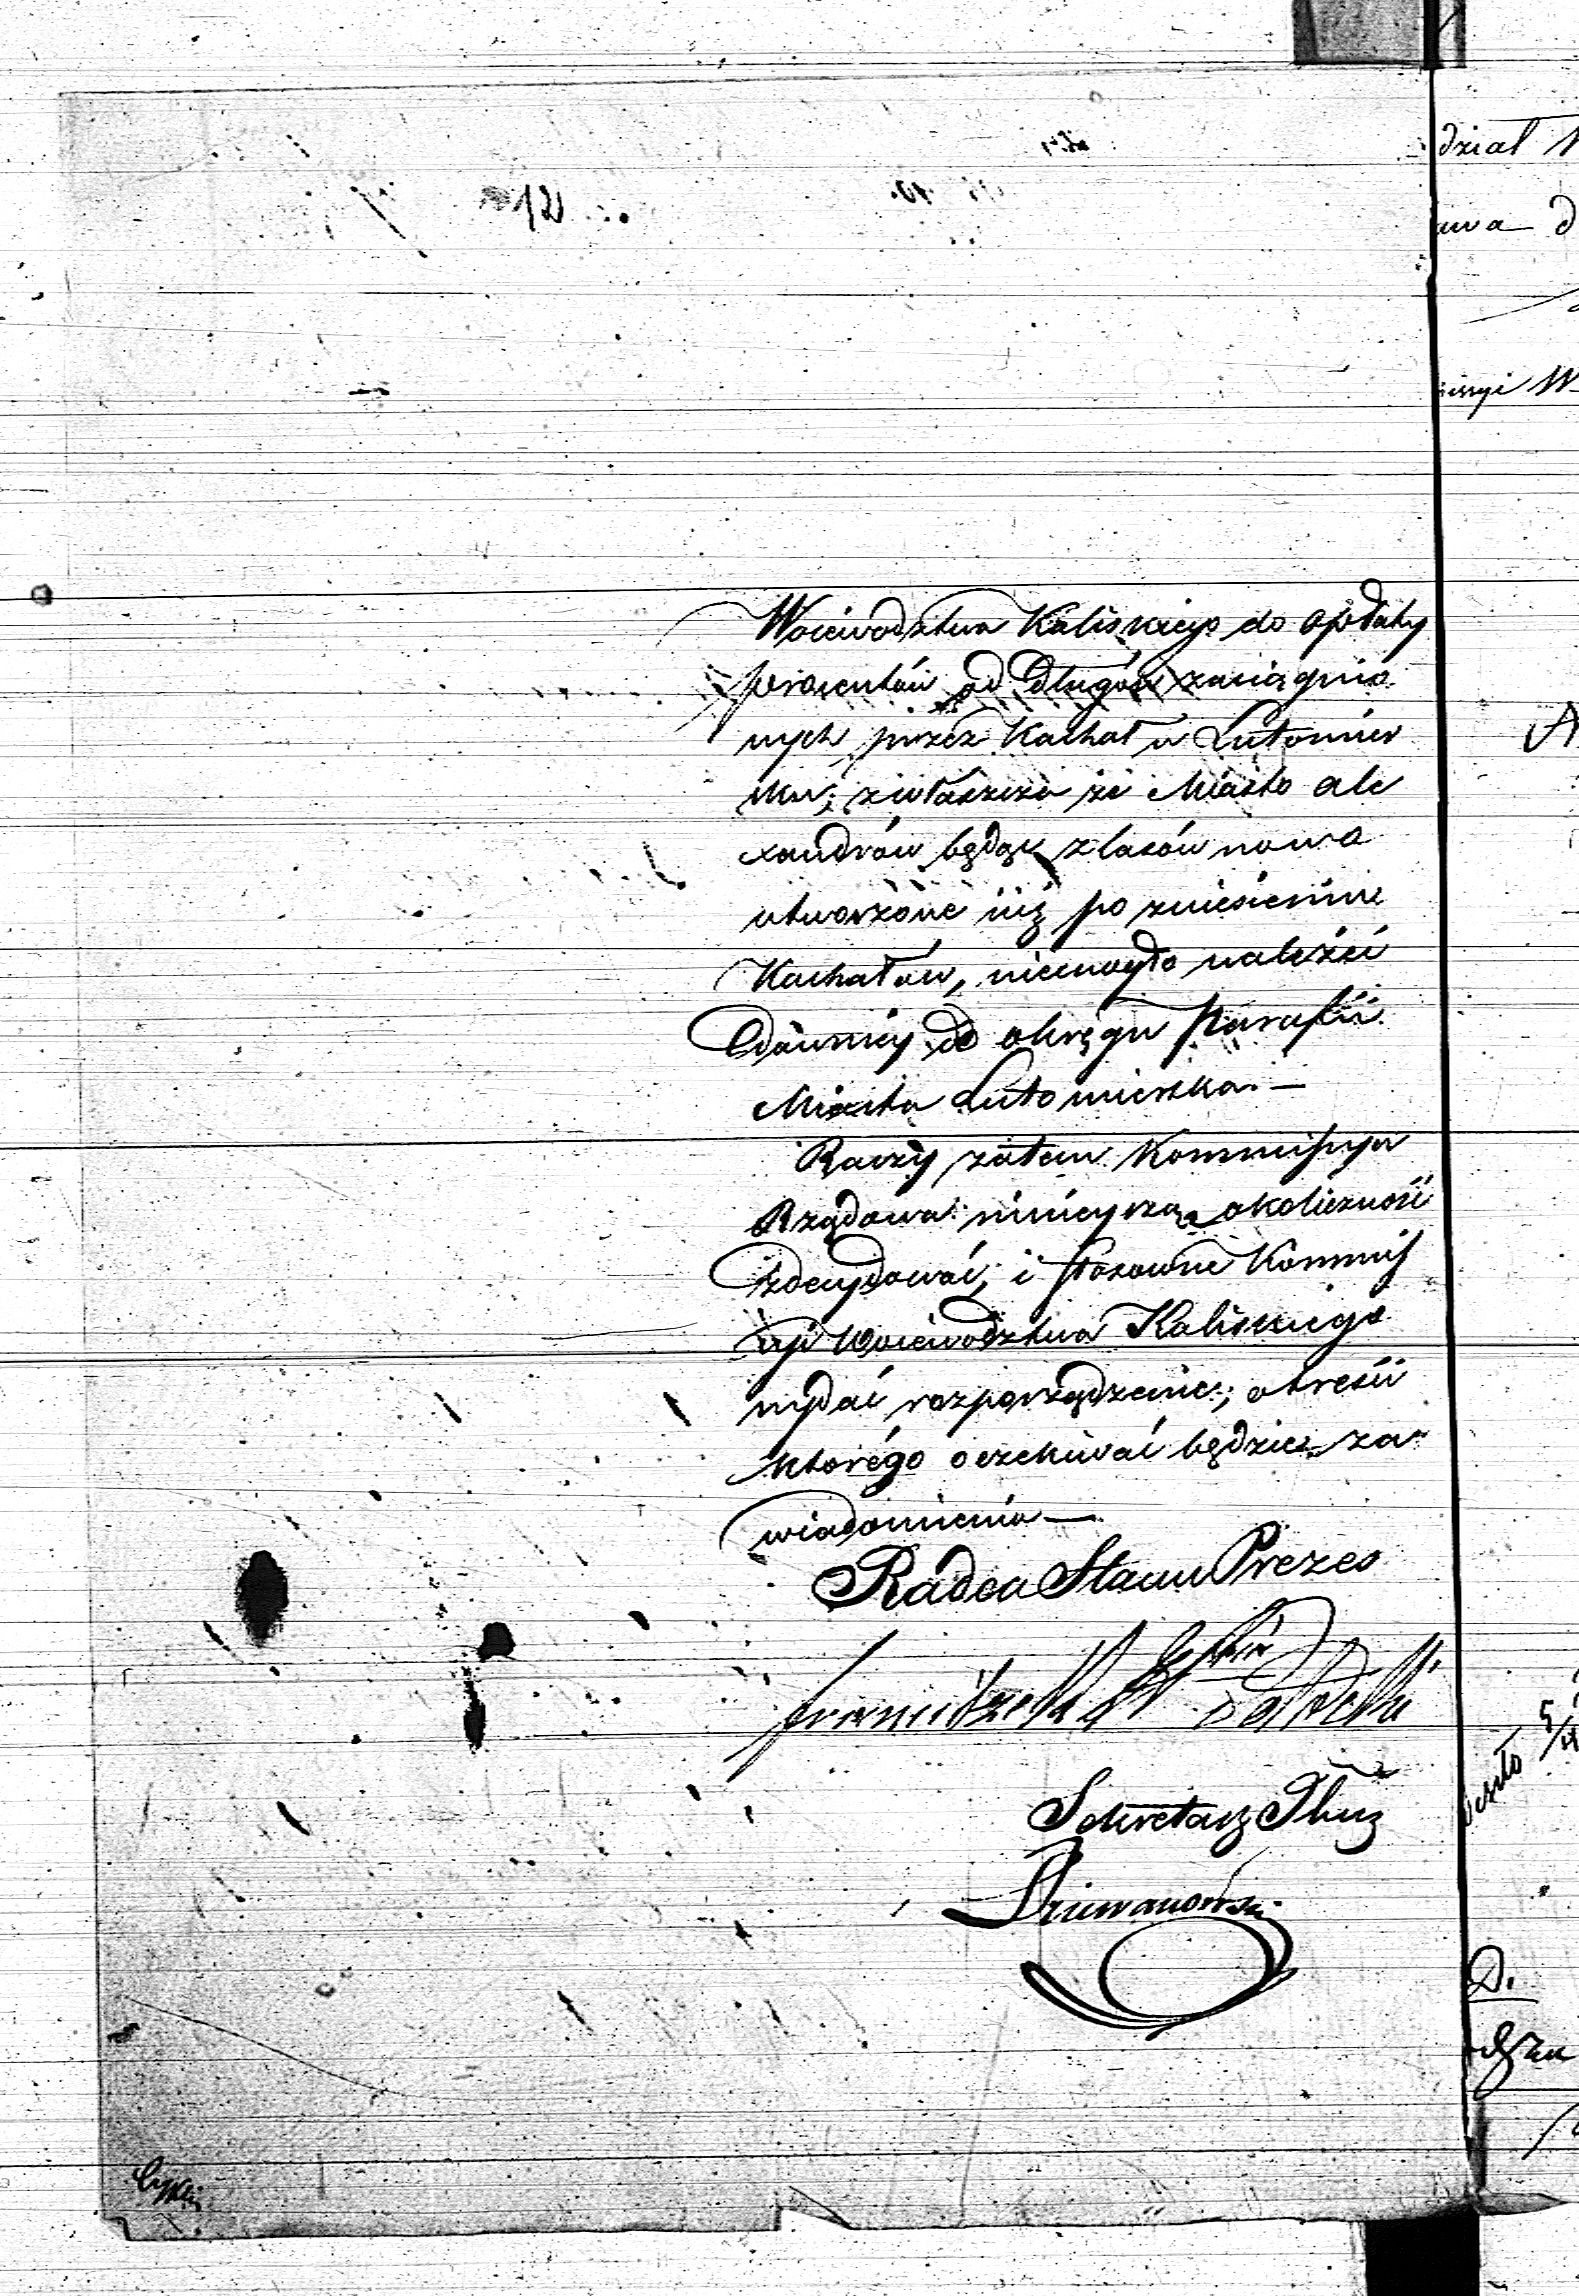 12
Woiewodztwa Kaliskiego do opłaty
procentów od długów zaciągnio
nych przez Kachał w Lutomier
sku; zwłaszcza że Miasto Ale
xandrów będąc z lasów nowo
utworzone iuż po zniesieniu
Kachałów, niemogło należeć
dawniey do okręgu Parafii
Miasta Lutomierska. —
Raczy zatem Kommissya
Rządowa ninieyszą okoliczność
zdecydować; i stosowne Kommis
syi Woiewodztwa Kaliskiego
wydać rozporządzenie; o treści
którégo oczekiwać będzie za-
wiadomienia —
Radca Stanu Prezes
Sekretarz Jlny
dział